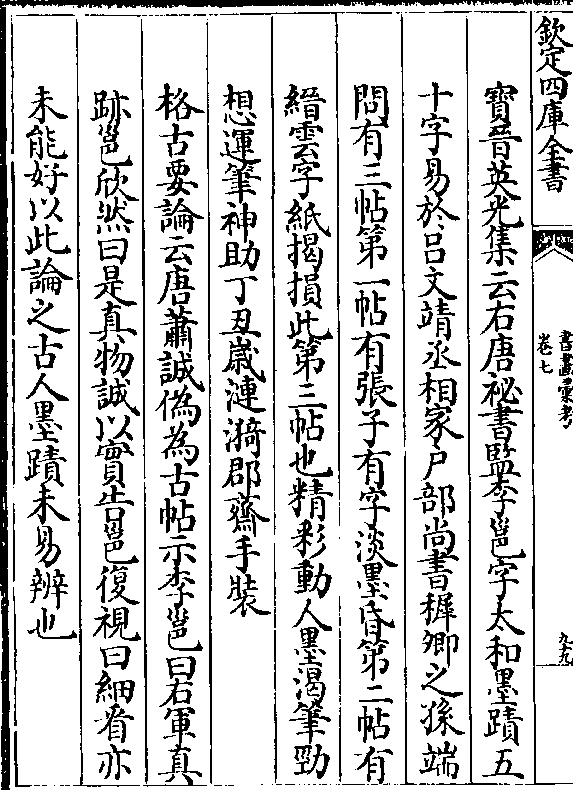 欽定四庫全書
書畫彙考
卷七
九九
寶晉英光集云右唐祕書監李邕字太和墨蹟五
十字易於呂文靖丞相家戶部尚書穉卿之孫端
問有三帖第一帖有張子有字淡墨昏第二帖有
縉雲字紙揭損此第三帖也精彩動人墨渴筆勁
想運筆神助丁丑歲漣漪郡齋手裝
格古要論云唐蕭誠偽為古帖示李邕曰右軍真
跡邕欣然曰是真物誠以實告邕復視曰細看亦
未能好以此論之古人墨蹟未易辨也